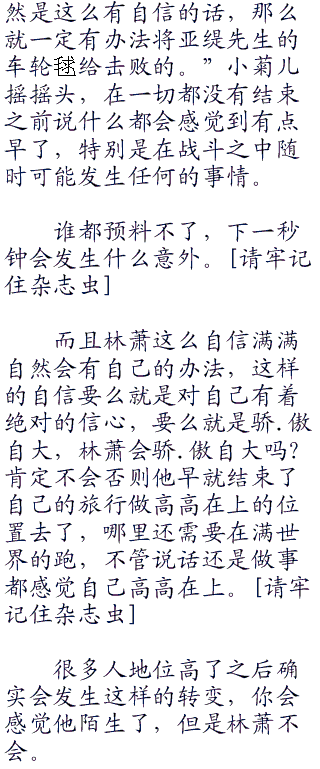 然是这么有自信的话，那么
就一定有办法将亚缇先生的
车轮毬给击败的。”小菊儿
摇摇头，在一切都没有结束
之前说什么都会感觉到有点
早了，特别是在战斗之中随
时可能发生任何的事情。
谁都预料不了，下一秒
钟会发生什么意外。[请牢记
住杂志虫]
而且林萧这么自信满满
自然会有自己的办法，这样
的自信要么就是对自己有着
绝对的信心，要么就是骄.傲
自大，林萧会骄.傲自大吗?
肯定不会否则他早就结束了
自己的旅行做高高在上的位
置去了，哪里还需要在满世
界的跑，不管说话还是做事
都感觉自己高高在上。[请牢
记住杂志虫]
很多人地位高了之后确
实会发生这样的转变，你会
感觉他陌生了，但是林萧不
会。